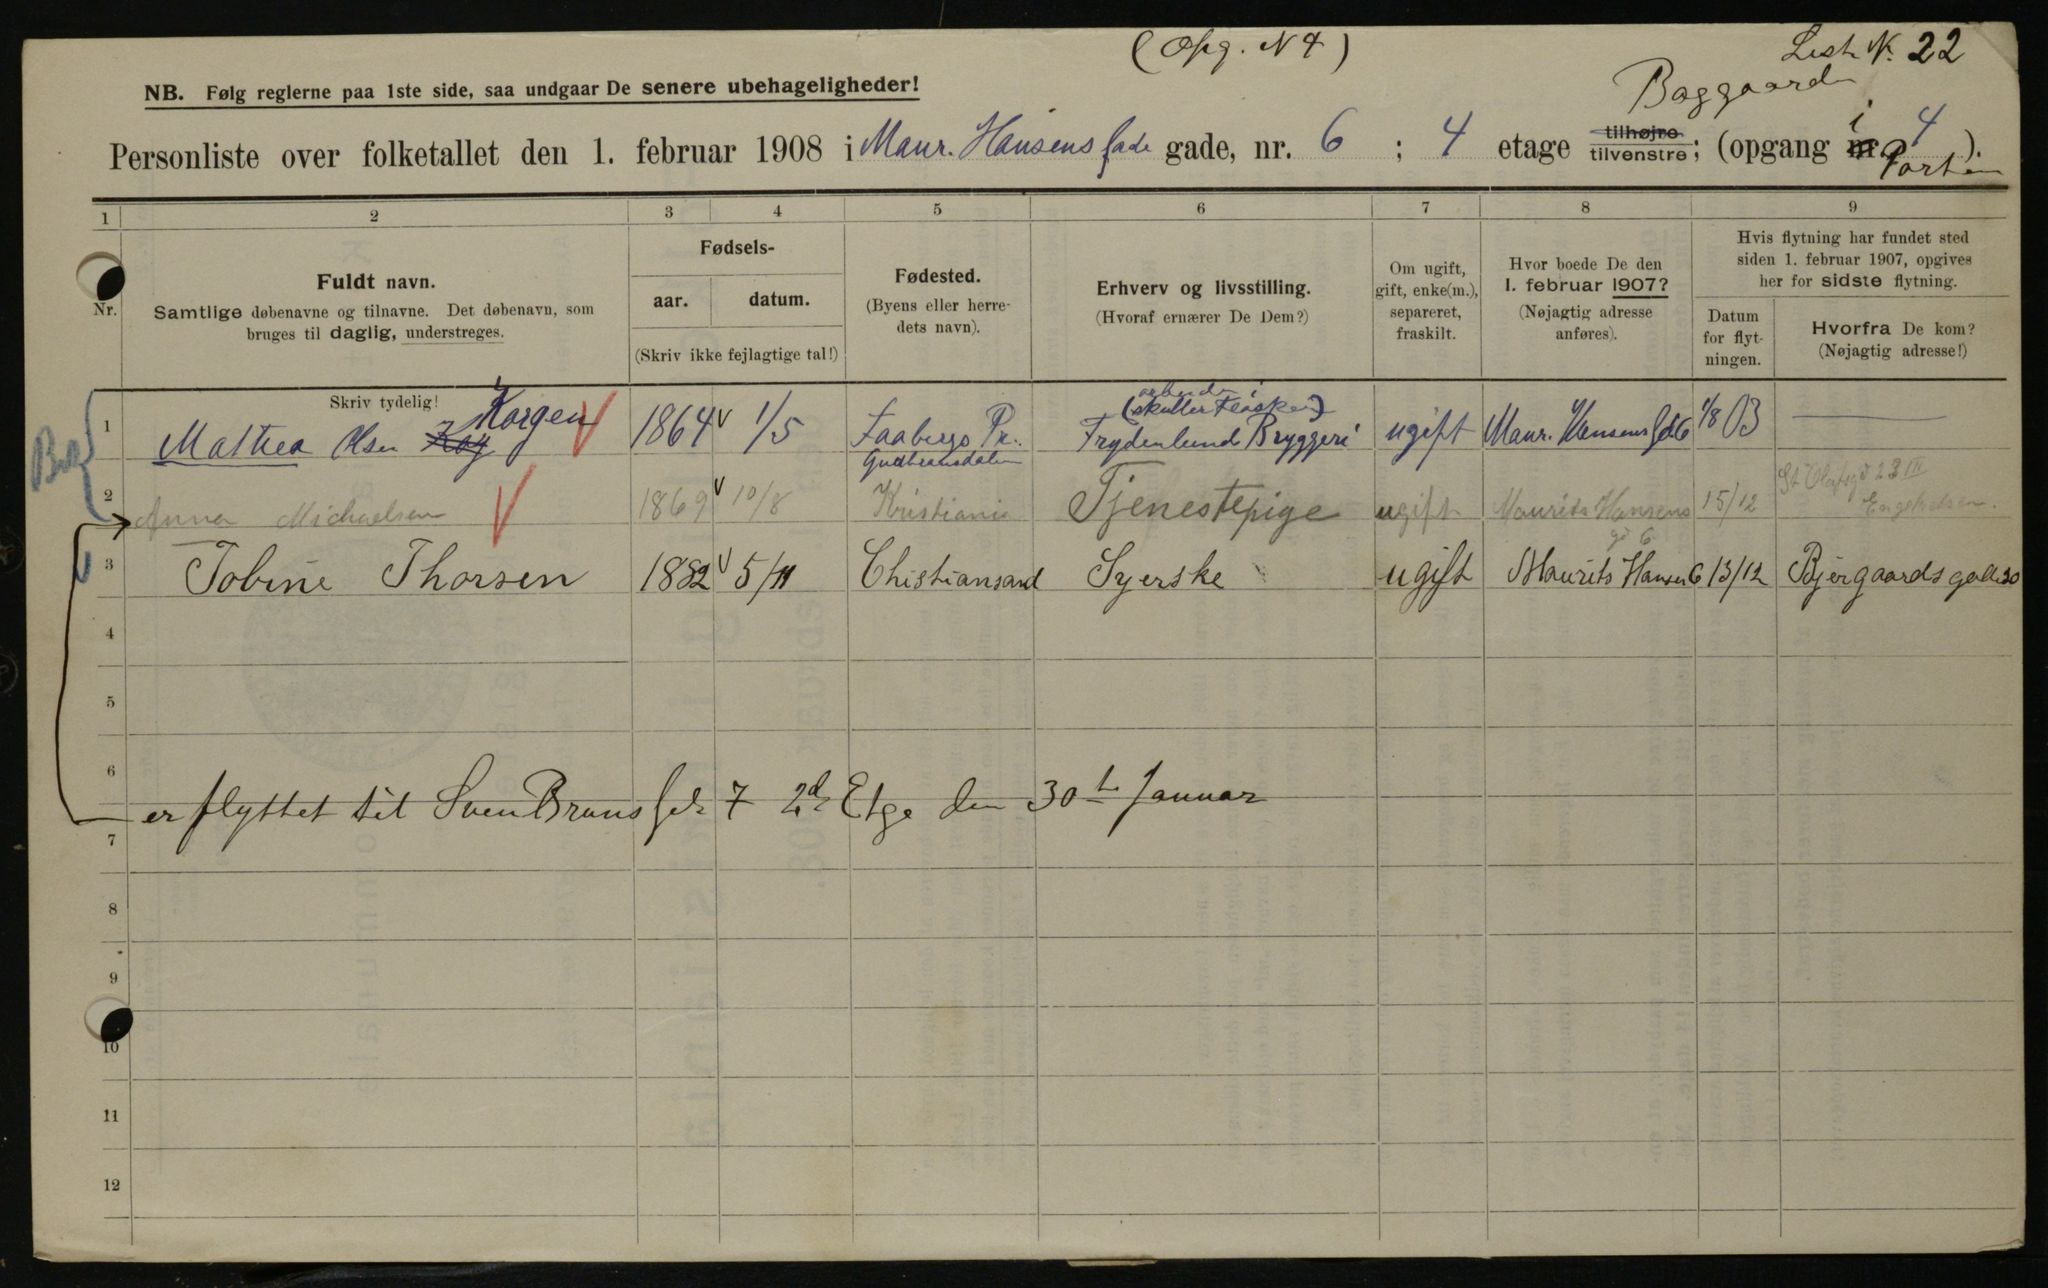 (Opg. N 4)
List N. 22
NB. Følg reglerne paa 1ste side, saa undgaar De senere ubehageligheder!
Baggaarden
Personliste over folketallet den 1. februar 1908 i Maur. Hansens gade gade, nr. 6 ; 4 etage tilhøjre tilvenstre; (opgang nr. 4 ).
i Porten
1 2 3 4 5 6 7 8 9
Nr.
Fuldt navn.
Samtlige døbenavne og tilnavne. Det døbenavn, som
bruges til daglig, understreges.
Fødsels-
aar. datum.
(Skriv ikke fejlagtige tal!)
Fødested.
(Byens eller herre-
dets navn).
Erhverv og livsstilling.
(Hvoraf ernærer De Dem?)
Om ugift,
gift, enke(m.),
separeret,
fraskilt.
Hvor boede De den
1. februar 1907?
(Nøjagtig adresse
anføres).
Hvis flytning har fundet sted
siden 1. februar 1907, opgives
her for sidste flytning.
Datum
for flyt-
ningen.
Hvorfra De kom?
(Nøjagtig adresse!)
Skriv tydelig!
1 Mathea Olsen Kog Korgen 1864 1/5 Faabergs Pr. Gudbransdalen Frydenlund Bryggeri ugift Maur. Hansens Gd 6 1/8 03
2 Anna Michaelsen 1869 10/8 Kristiania Tjenestepige ugift Maurits Hansens gd 6 15/12 St Olafsgd 23 III
3 Tobine Thorsen 1882 5/11 Chistiansand Syerske ugift Maurits Hansen 6 13/12 Bjergaardsgade 30
4
5
6
er flyttet til Sven Bruns Gd 7 2de Etge den 30te Januar
7
8
9
10
11
12